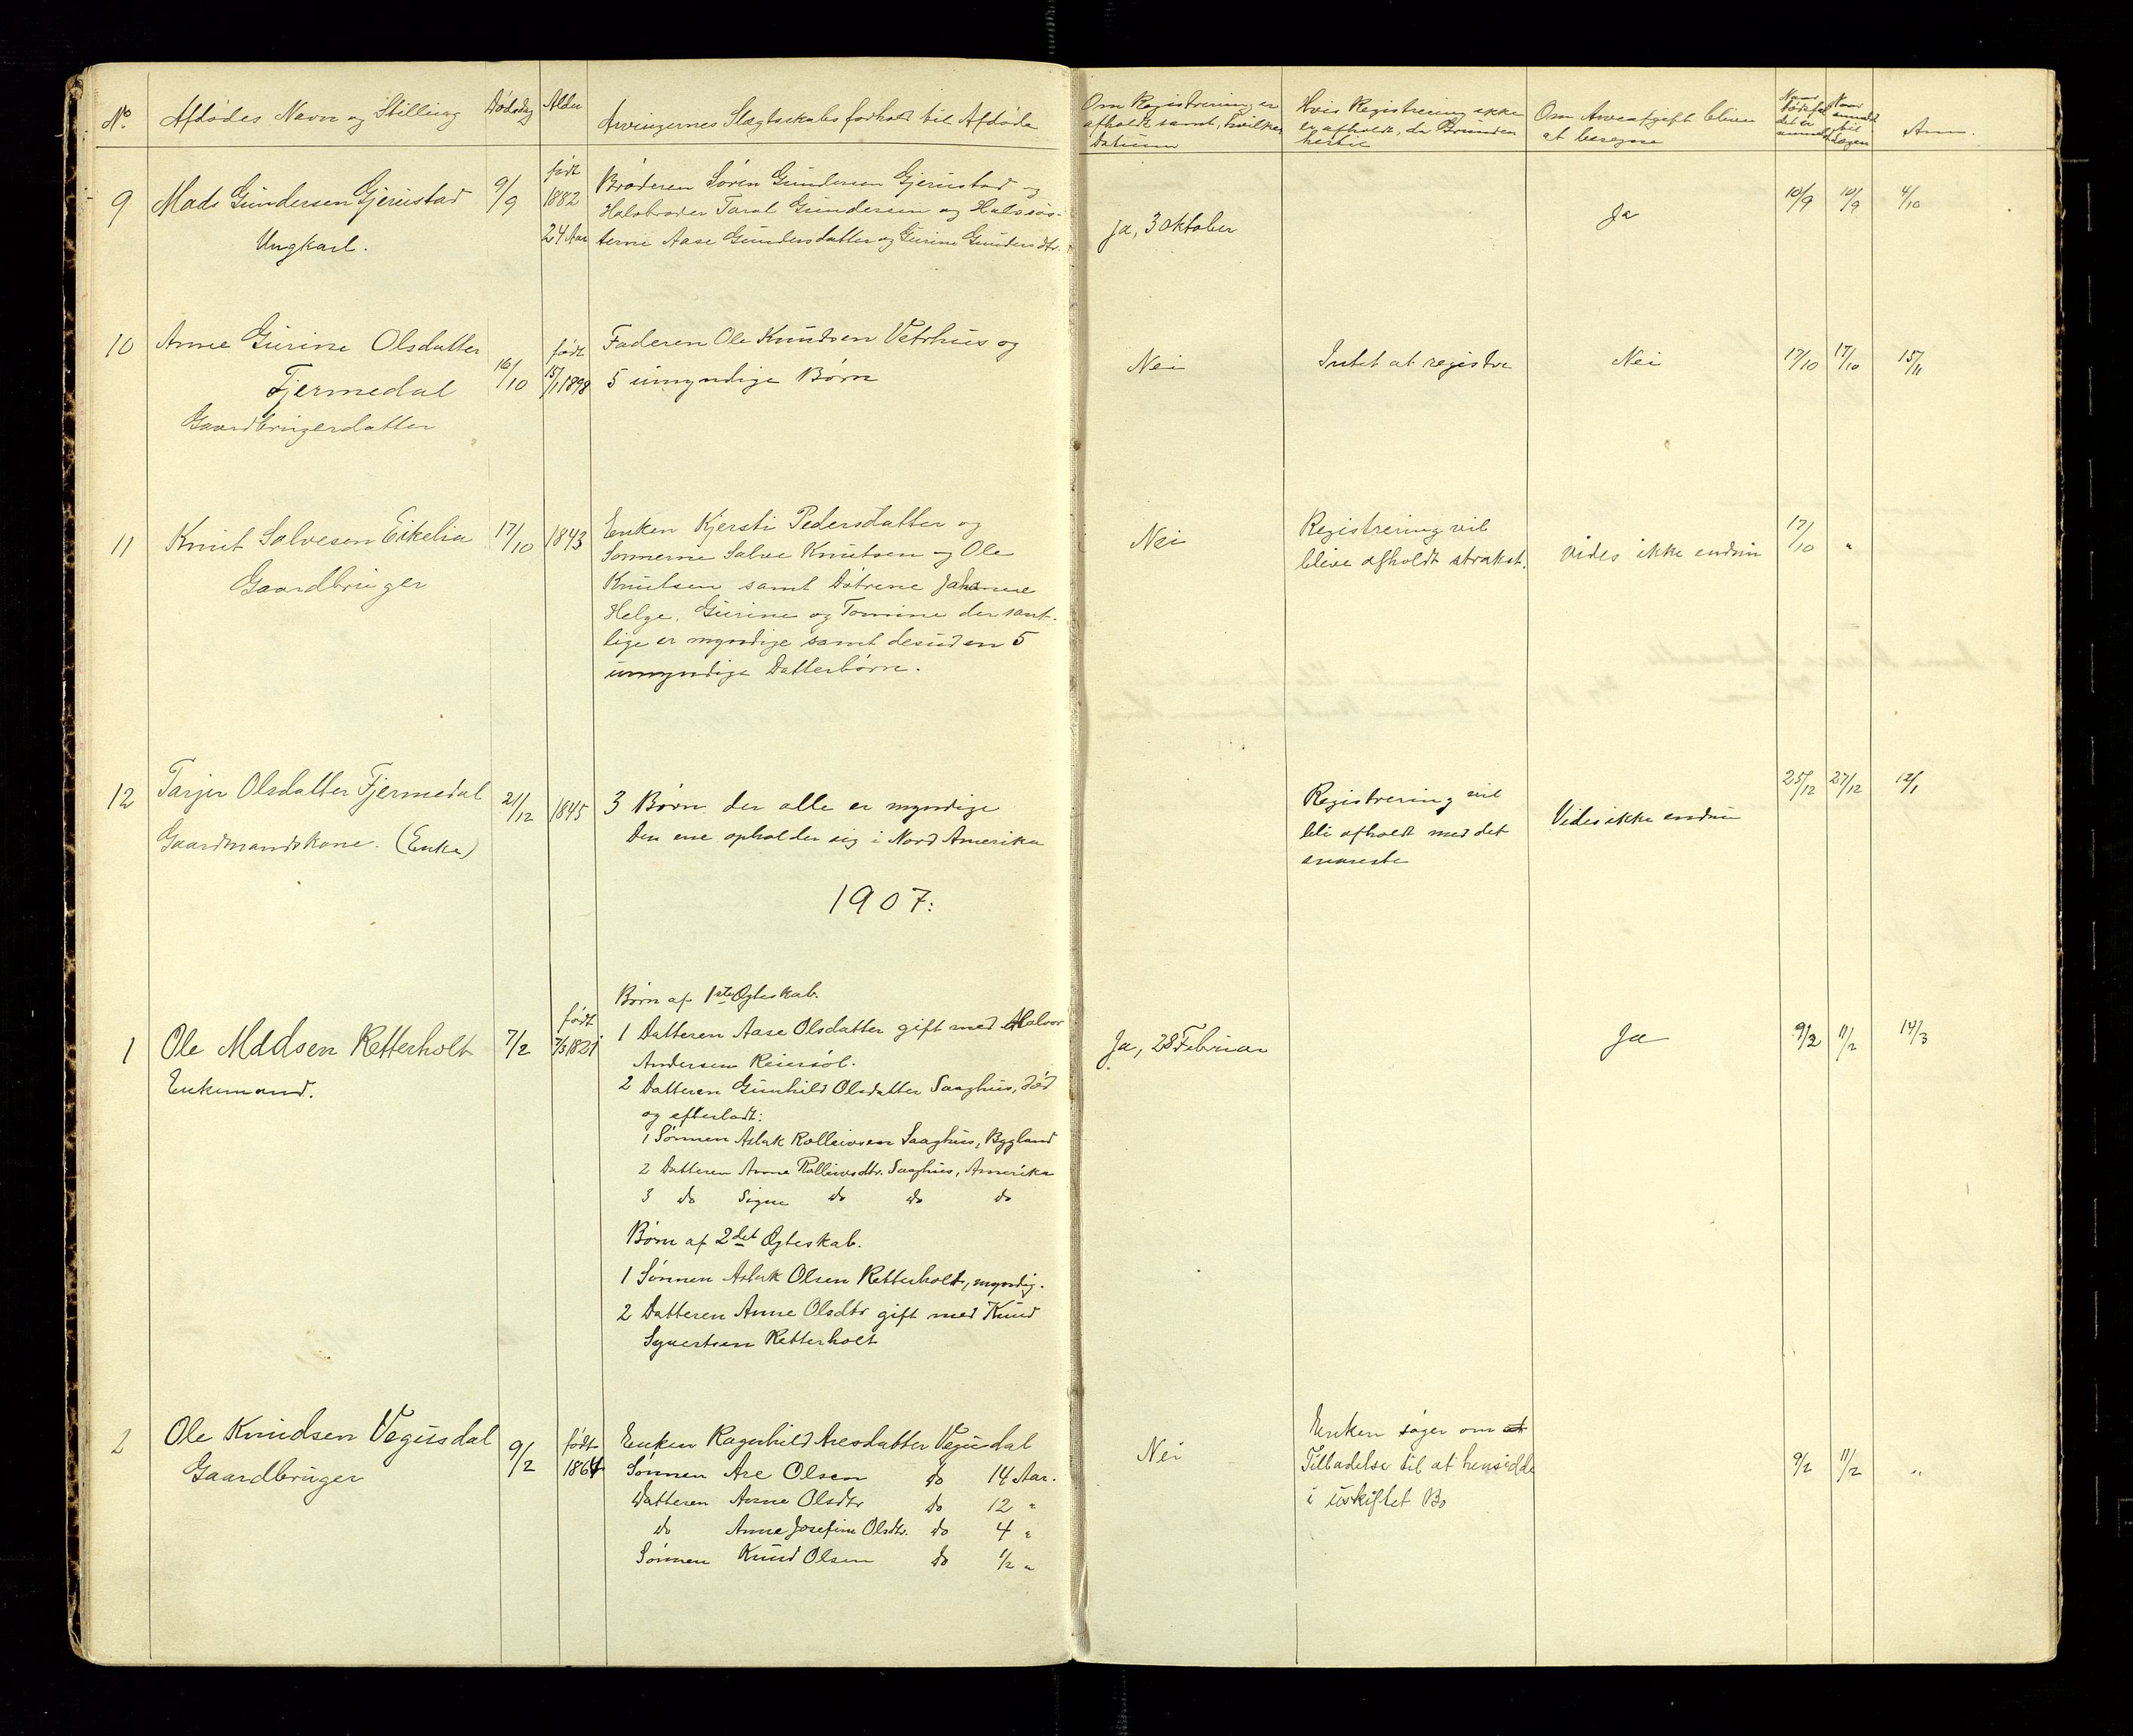 No. Afdødes Navn og Stilling Dødsdag Alder Arvingernes Slægtskabsforhold til Afdøde
Om Registrering er afholdt samt, hvilken Datum
Hvis Registrering ikke er afholdt, da Grunden hertil
Om Arveafgift bliver at beregne
Naar dødsfaldet er anmeldt
Naar anmeldt til
Anm.
9 Mads Gundersen Gjerustad
Ungkarl.
9/9
født
1882
24 Aar
Broderen Søren Gundersen Gjerustad og
Halvbroder Taral Gundersen og Halvsøs-
terne Aase Gundersdatter og Gurine Gundersdtr.
Ja, 3 Oktober
Ja
10/9 10/9 4/10
10 Anne Gurine Olsdatter
Fjermedal
Gaardbrugerdatter
16/10
født
15/1 1898
Faderen Ole Knudsen Vetrhus og
5 umyndige Børn
Nei
Intet at registre
Nei
17/10 17/10 15/11
11 Knut Salvesen Eikelia
Gaardbruger
17/10
1843
Enken Kjersti Pedersdatter og
Sønnerne Salve Knutsen og Ole
Knutsen samt Døtrene Johanne
Helge, Gurine og Tomine der samt-
lige er myndige samt desuden 5
umyndige Datterbørn.
Nei
Registrering vil
blive afholdt strakst.
Vides ikke endnu
17/10 "
12 Tarjer Olsdatter Fjermedal
Gaardmandskone. (Enke)
21/12
1845
3 Børn der alle er myndige
Den ene opholder sig i Nord Amerika
Registrering vil
bli afholdt med det
snareste
Vides ikke endnu
25/12 27/12 12/1
1907:
1 Ole Madsen Retterholt
Enkemand.
7/2
født
7/3 1821
Børn af 1ste Ægteskab.
1 Datteren Aase Olsdatter gift med Halvor
Andersen Reiersøl.
2 Datteren Gunhild Olsdatter Saaghus, død
og efterladt:
1 Sønnen Aslak Rolleivsen Saaghus, Bygland
2 Datteren Anne Rolleivsdtr. Saaghus, Amerika
3 do Signe do do do
Børn af 2det Ægteskab.
1 Sønnen Aslak Olsen Retterholt, myndig.
2 Datteren Anne Olsdtr gift med Knud
Syvertsen Retterholt
Ja, 28 Februar
Ja
9/2 11/2 14/3
2 Ole Knudsen Vegusdal
Gaardbruger
9/2
født
1864
Enken Ragnhild Aresdatter Vegusdal
Sønnen Are Olsen do 14 Aar.
Datteren Anne Olsdtr do 12 "
do Anne Josefine Olsdtr. do 4 "
Sønnen Knud Olsen do 1/2 "
Nei
Enken søger om at
Tilladelse til at hensidde
i uskiftet Bo
9/2 11/2 "